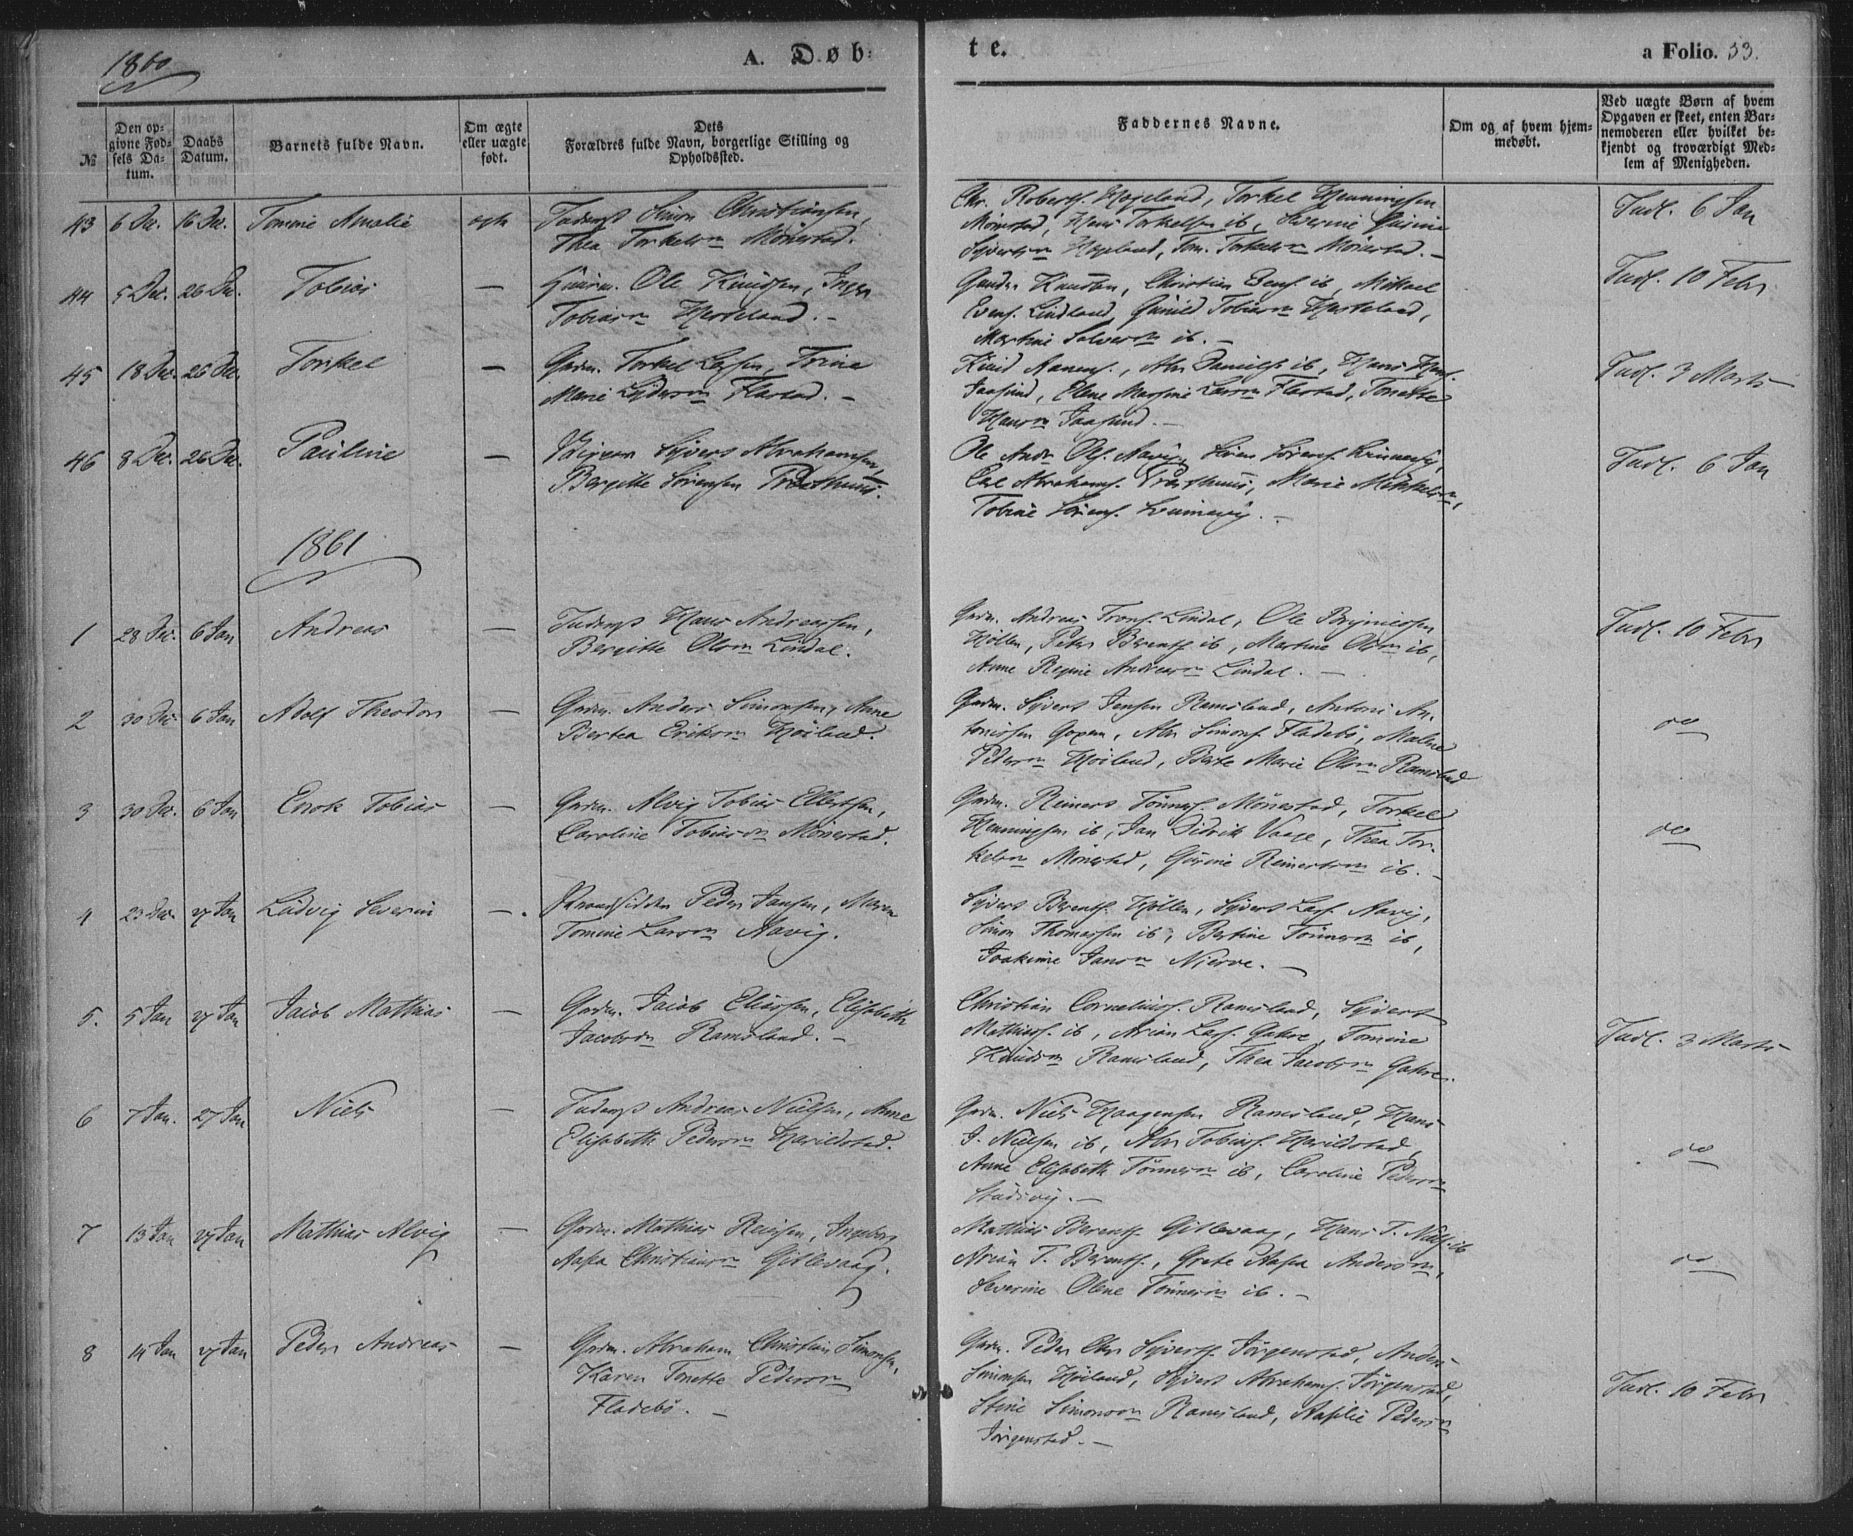 1860
A. Døb:
te.
a Folio. 33.
№
Den op-
givne Fød-
sels Da-
tum.
Daabs
Datum.
Barnets fulde Navn.
Om ægte
eller uægte
født.
Dets
Forældres fulde Navn, borgerlige Stilling og
Opholdssted.
Faddernes Navne.
Om og af hvem hjem-
medøbt.
Ved uægte Børn af hvem
Opgaven er skeet, enten Bar-
nemoderen eller hvilket be-
kjendt og troværdigt Med-
lem af Menigheden.
43 6 Dec. 16 Dec. Tomine Amalie ægte Inderst Simon Christiansen,
Thea Torkelsn Mönestad.
Chr. Roberts. Hogeland, Torkel Henningsen
Mönestad, Hans Torkelsen ib, Severine Gurine
Syvertsn Hogeland, Tom. Torkelsn Mönestad. –
Indl. 6 Jan
44 5 Dec. 26 Dec. Tobias — Ole Knudsen, Inger
Tobiasn Herteland. –
Gunder Knudsen, Christian Jens. ib, Mikkael
Evens. Lindland, Gunild Tobiasn Herteland,
Martine Salvesn ib. –
Indl. 10 Febr
45 18 Dec. 26 Dec. Torkel — Gaardm. Torkel Larsen, Trine
Marie Flestad. –
Knud Aanens., Abr Daniels. ib, Hans Hans.
Jaasund, Elene Marine Larsn Flestad, Tonette
Hansn Jaasund. –
Indl. 3 Marts
46 8 Dec. 26 Dec. Pauline — Syvert Abrahamsen,
Bergitte Sörensen Præsthuus.
Ole Andr Ols. Aavig, Sörens.
Carl Abrahams. Præsthuus, Marie Mikkelsn,
Tobine Sörens. –
Indl. 6 Jan
1861
1 28 Dec. 6 Jan Andreas — Inderst Hans Andreassen,
Bergitte Olsn Lindal.
Gaardm. Andreas Trons. Lindal, Ole Brynildsen
Höllen, Peter Berents. ib, Martine Olsn ib,
Anne Regine Andreasn Lindal. –
Indl. 10 Febr
2 30 Dec 6 Jan Adolf Theodor — Gaardm. Anders Simonsen, Anne
Bertea Eriksn Höiland.
Gaardm. Syvert Jensen Ramsland, Antoni An-
tonissen Goxem, Abr Simons. Fladebö, Malene
Pedersn Höiland, Berte Marie Olsn Ramsland
do
3 30 Dec. 6 Jan Enok Tobias — Gaardm. Alvig Tobias Ellertsen,
Caroline Tobiasdn Mönestad.
Gaardm. Reinert Tönnes. Mönestad, Torkel
Henningsen ib, Jan Didrik Vaage, Thea Tor-
kelsn Mönestad, Gurine Reinertsn ib. –
do
4 23 Dec. 27 Jan Ludvig Severin — . Strandsidder Peder Jansen, Maren
Tomine Larsn Aavig.
Syvert Berents. Höllen, Syvert Lars. Aavig,
Simon Thomassen ib, Bertine Tönnesn ib,
Joakime Jansn Njerve. –
5. 5 Jan 27 Jan Jacob Mathias — Gaardm. Jacob Eliassen, Elisabeth
Jacobsdn Ramsland. –
Christian Cornelius. Ramsland, Syvert
Mathias. ib, Arian Lars. Gahre, Tomine
Knudsn Ramsland, Thea Jacobsn Gahre.
Indl. 3 Marts
6 7 Jan. 27 Jan Niels — Inderst Andreas Nielsen, Anne
Elisabeth Pedersn Harildstad.
Gaardm. Niels Haagensen Ramsland, Hans
J. Nielsen ib, Abr Tobias. Harildstad,
Anne Elisabeth Tönnesn ib, Caroline Pedersn
Stusvig. –
do
7 13 Jan 27 Jan Mathias Alvig — Gaardm. Mathias Reiersen, Ingeborg
Aasa Christiansn Gitlevaag.
Mathias Berents. Gitlevaag, Hans T. Niels. ib
Arian T. Berents., Grete Aasa Andersn,
Severine Olene Tönnesn ib. –
do
8 14 Jan 27 Jan Peder Andreas — Gaardm. Abraham Christian Simonsen,
Karen Tonette Pedersn
Fladebö. –
Gaardm. Peder Chr. Syverts. Jörgenstad, Anders
Simonsen Höiland, Syvert Abrahams. Jörgenstad,
Stine Simonsdn Ramsland, Aaslie Pedersn
Jörgenstad. –
Indl. 10 Febr